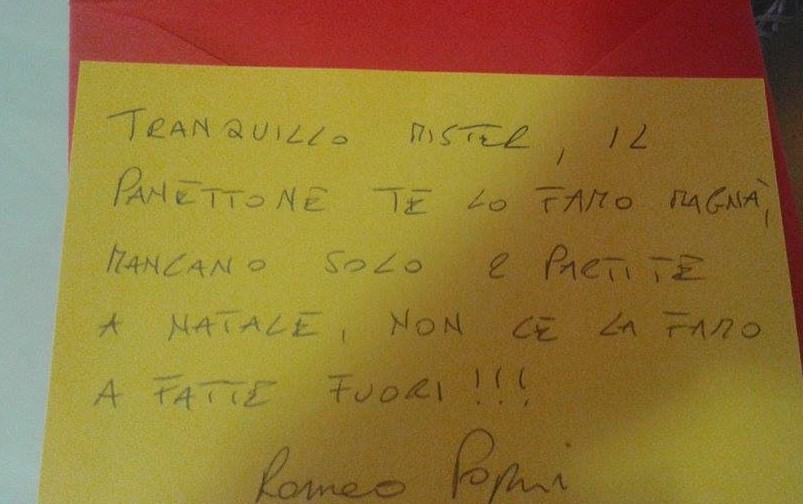 TRANQUILLO MISTER, IL
PANETTONE TE LO FAMO MAGNÀ,
MANCANO SOLO 2 PARTITE
A NATALE, NON CE LA FAMO
A FATTE FUORI!!!
Romeo